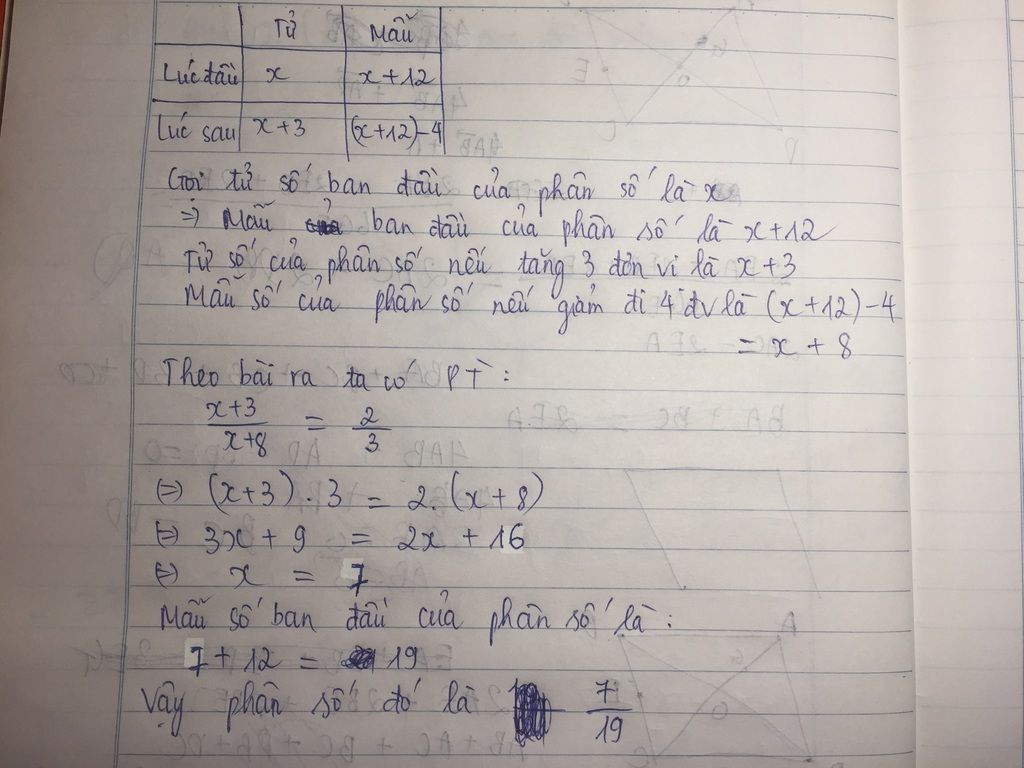 Tử Mẫu
Lúc đầu x x+12
Lúc sau x+3 (x+12)-4
Gọi tử số ban đầu của phân số là x
=> Mẫu ban đầu của phân số là x+12
Tử số của phân số nếu tăng 3 đơn vị là x+3
Mẫu số của phân số nếu giảm đi 4 đv là (x+12)-4
= x + 8
Theo bài ra ta có PT:
x+3/x+8 = 2/3
<=> (x+3).3 = 2.(x+8)
<=> 3x+9 = 2x+16
<=> x = 7
Mẫu số ban đầu của phân số là:
7+12 = 19
Vậy phân số đó là 7/19